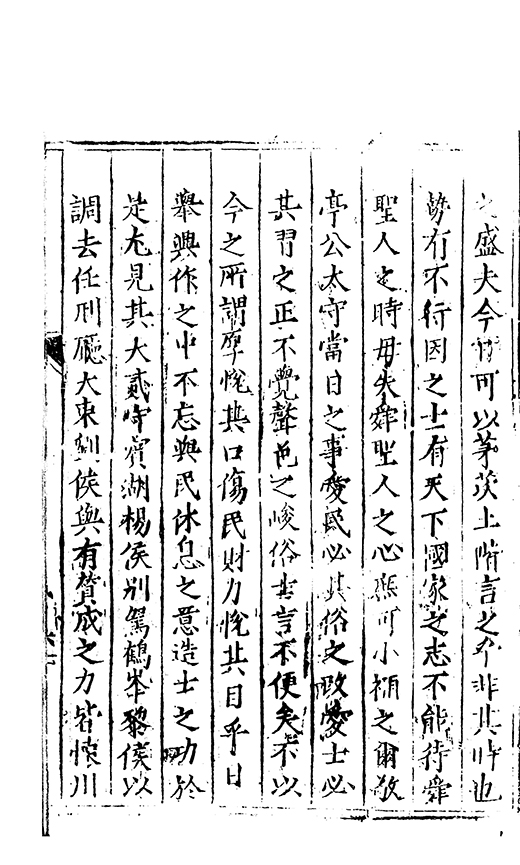 之盛夫今何可以茅茨土階言之乎非其時也
勢有不行因之士有天下國家之志不能待舜
聖人之時毋失舜聖人之心焉可小補之爾敬
亭公太守當日之事愛民必其俗之政愛士必
其習之正不覺聲色之峻俗吏言不便矣不以
今之所謂厚悅其口傷民財力悅其目乎日
舉興作之中不忘與民休息之意造士之功於
是尤見其大貳守賓湖楊侯別駕鶴峯黎侯以
調去任刑廳大東劉侯與有贊成之力皆悚川